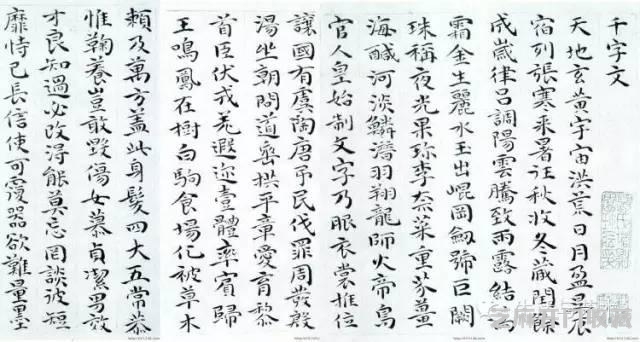 千字文
天地玄黃宇宙洪荒日月盈昃辰
宿列張寒来暑往秋收冬藏閏餘
成歲律吕調陽雲騰致雨露結為
霜金生麗水玉出崐岡劔號巨闕
珠稱夜光果珍李柰菜重芥薑
海醎河淡鱗潛羽翔龍師火帝鳥
官人皇始制文字乃服衣裳推位
讓國有虞陶唐弔民伐罪周發殷
湯坐朝問道垂拱平章愛育黎
首臣伏戎羌遐迩壹體率賓歸
王鳴鳳在樹白駒食場化被草木
賴及萬方盖此身髮四大五常恭
惟鞠養豈敢毀傷女慕貞潔男效
才良知過必改得能莫忘罔談彼短
靡恃己長信使可覆器欲難量墨